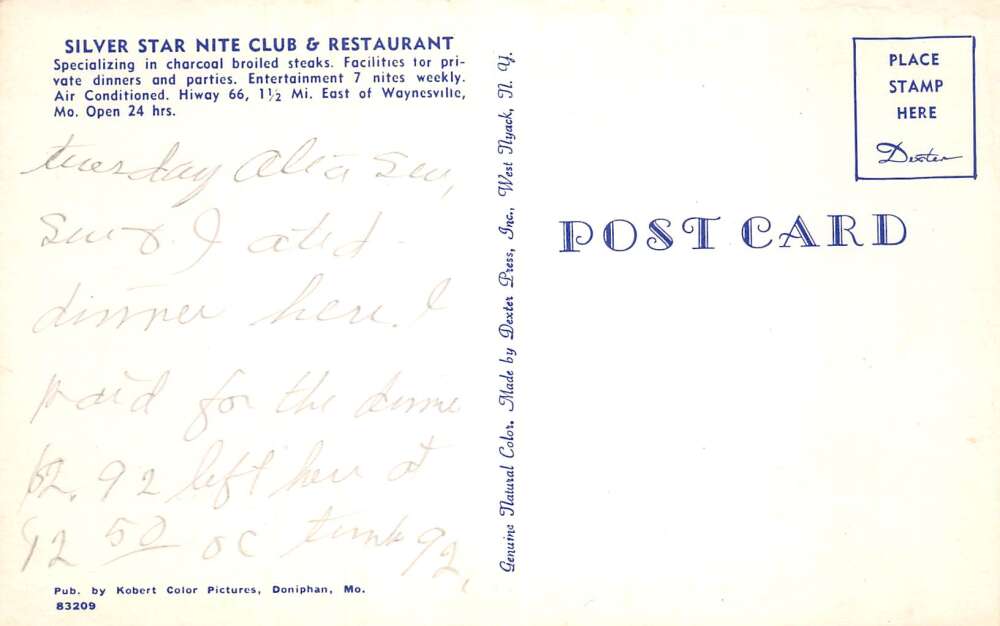 SILVER STAR NITE CLUB & RESTAURANT
Specializing in charcoal broiled steaks. Facilities for pri-
vate dinners and parties. Entertainment 7 nites weekly.
Air Conditioned. Hiway 66, 1½ Mi. East of Waynesville,
Mo. Open 24 hrs.
tuesday
I
dinner here. I
paid for the dinne
$2.92 left here at
12 50 oc
Pub. by Kobert Color Pictures, Doniphan, Mo.
83209
Genuine Natural Color. Made by Dexter Press, Inc., West Nyack, N. Y.
PLACE
STAMP
HERE
Dexter
POST CARD